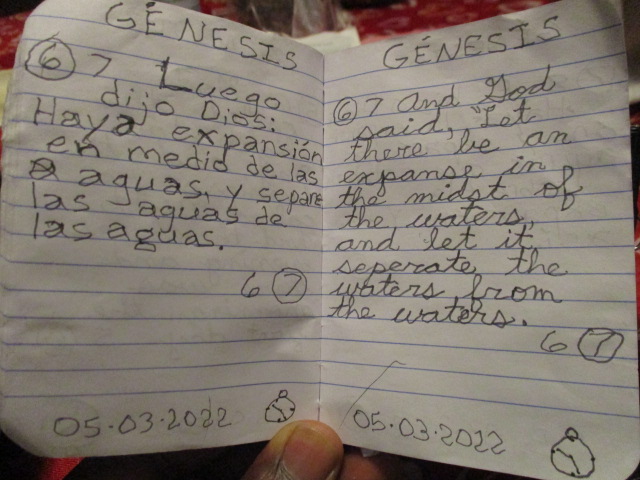 GÉNESIS
6 7 Luego
dijo Dios:
Haya expansión
en medio de las
aguas, y separe
las aguas de
las aguas.
6 7
05.03.2022
GÉNESIS
6 7 and God
said, "Let
there be an
expanse in
the midst of
the waters,
and let it
seperate the
waters from
the waters.
6 7
05.03.2022